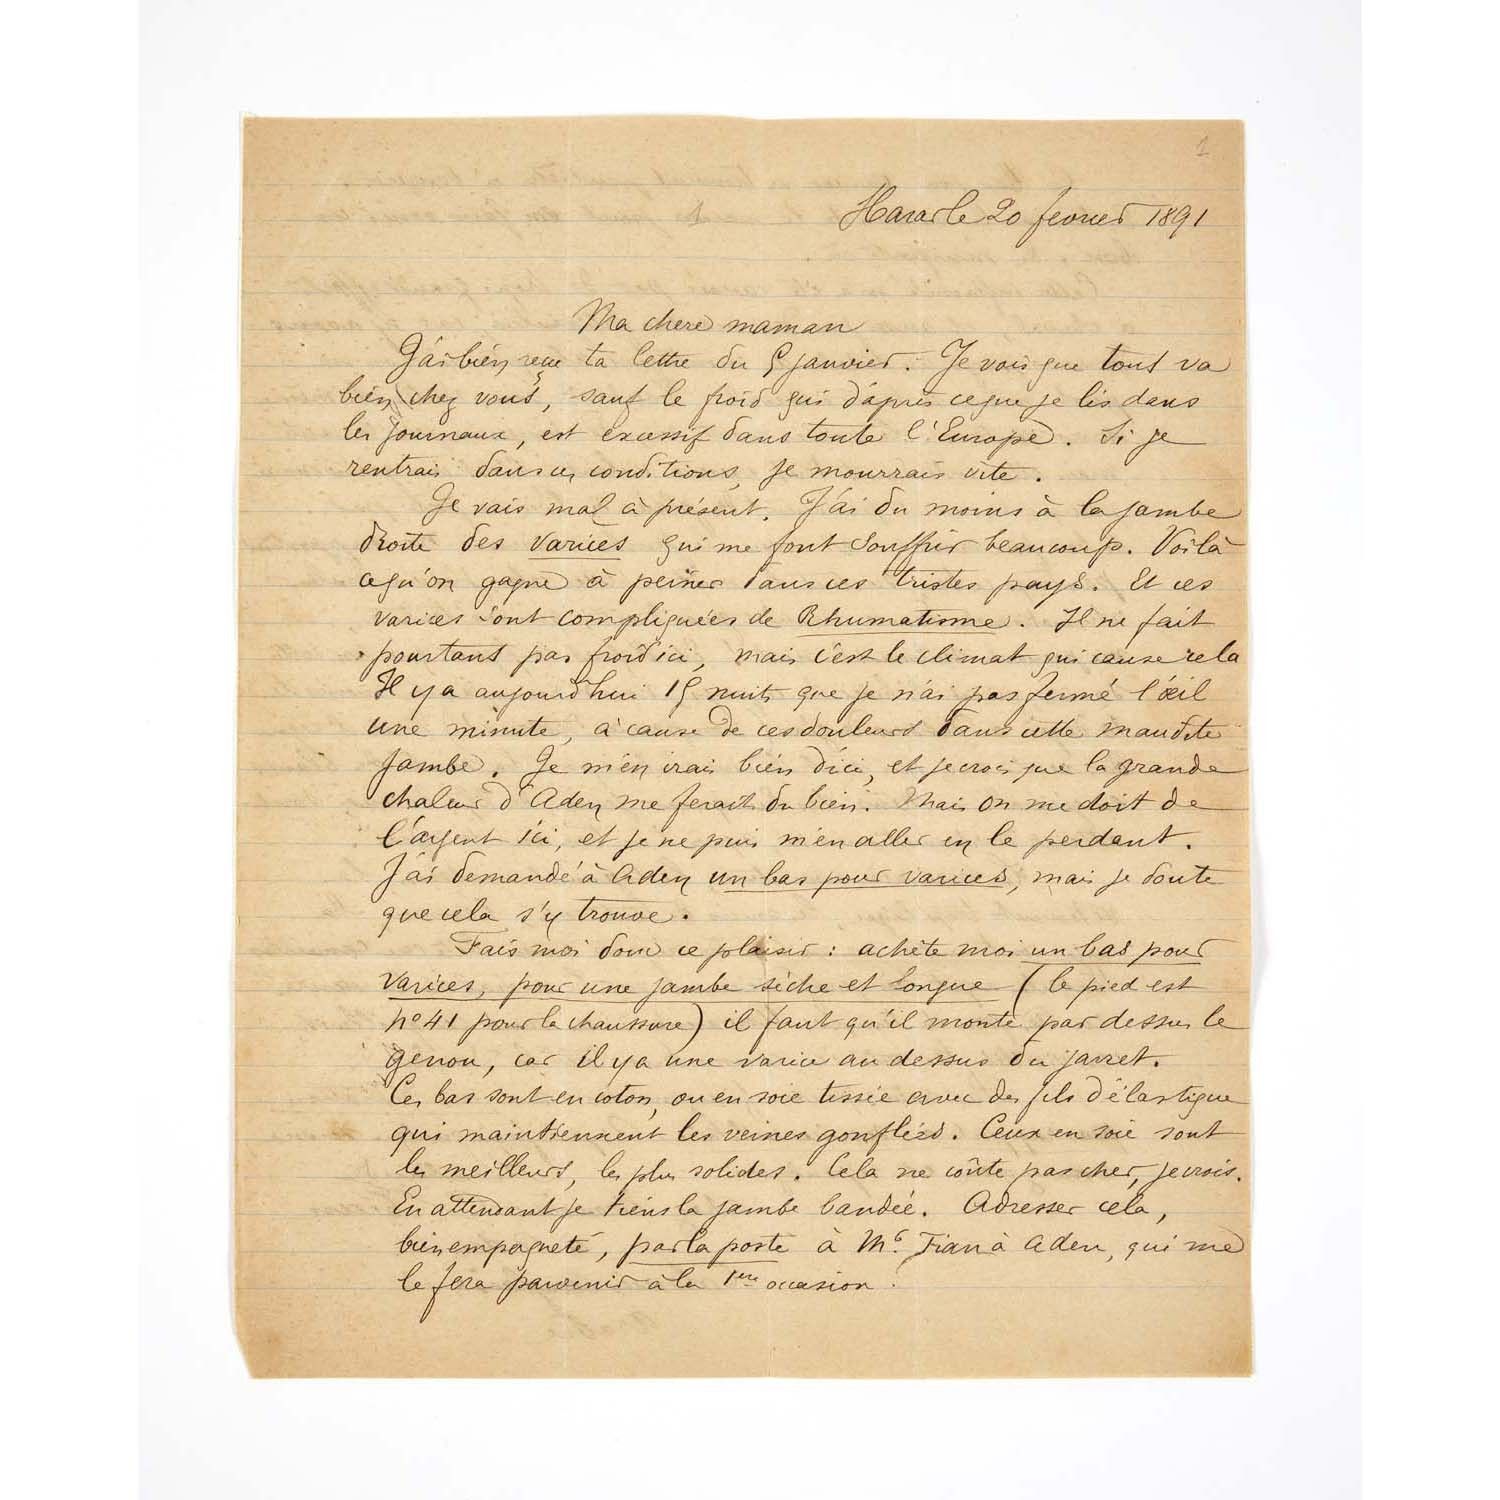 1
Harar le 20 fevrier 1891
Ma chere maman
J'ai bien reçu ta lettre du 5 janvier. Je vois que tout va
bien chez vous, sauf le froid qui d'après ce que je lis dans
les journaux, est excessif dans toute l'Europe. Si je
rentrais dans ces conditions, je mourrais vite.
Je vais mal à présent. J'ai du moins à la jambe
droite des varices qui me font souffrir beaucoup. Voilà
ce qu'on gagne à peiner dans ces tristes pays. Et ces
varices sont compliquées de Rhumatisme. Il ne fait
pourtant pas froid ici, mais c'est le climat qui cause cela
Il y a aujourd'hui 15 nuits que je n'ai pas fermé l'œil
une minute, à cause de ces douleurs dans cette maudite
jambe. Je m'en irais bien d'ici, et je crois que la grande
chaleur d'Aden me ferait du bien. Mais on me doit de
l'argent ici, et je ne puis m'en aller en le perdant.
J'ai demandé à Aden un bas pour varices, mais je doute
que cela s'y trouve.
Fais moi donc ce plaisir : achète moi un bas pour
varices, pour une jambe sèche et longue (le pied est
n° 41 pour la chaussure) il faut qu'il monte par dessus le
genou, car il y a une varice au dessus du jarret.
Ces bas sont en coton, ou en soie tissée avec des fils d'élastique
qui maintiennent les veines gonflées. Ceux en soie sont
les meilleurs, les plus solides. Cela ne coûte pas cher, je crois.
En attendant je tiens la jambe bandée. Adresser cela,
bien empaqueté, par la poste à Mr. Tian à Aden, qui me
le fera parvenir à la 1ere occasion.